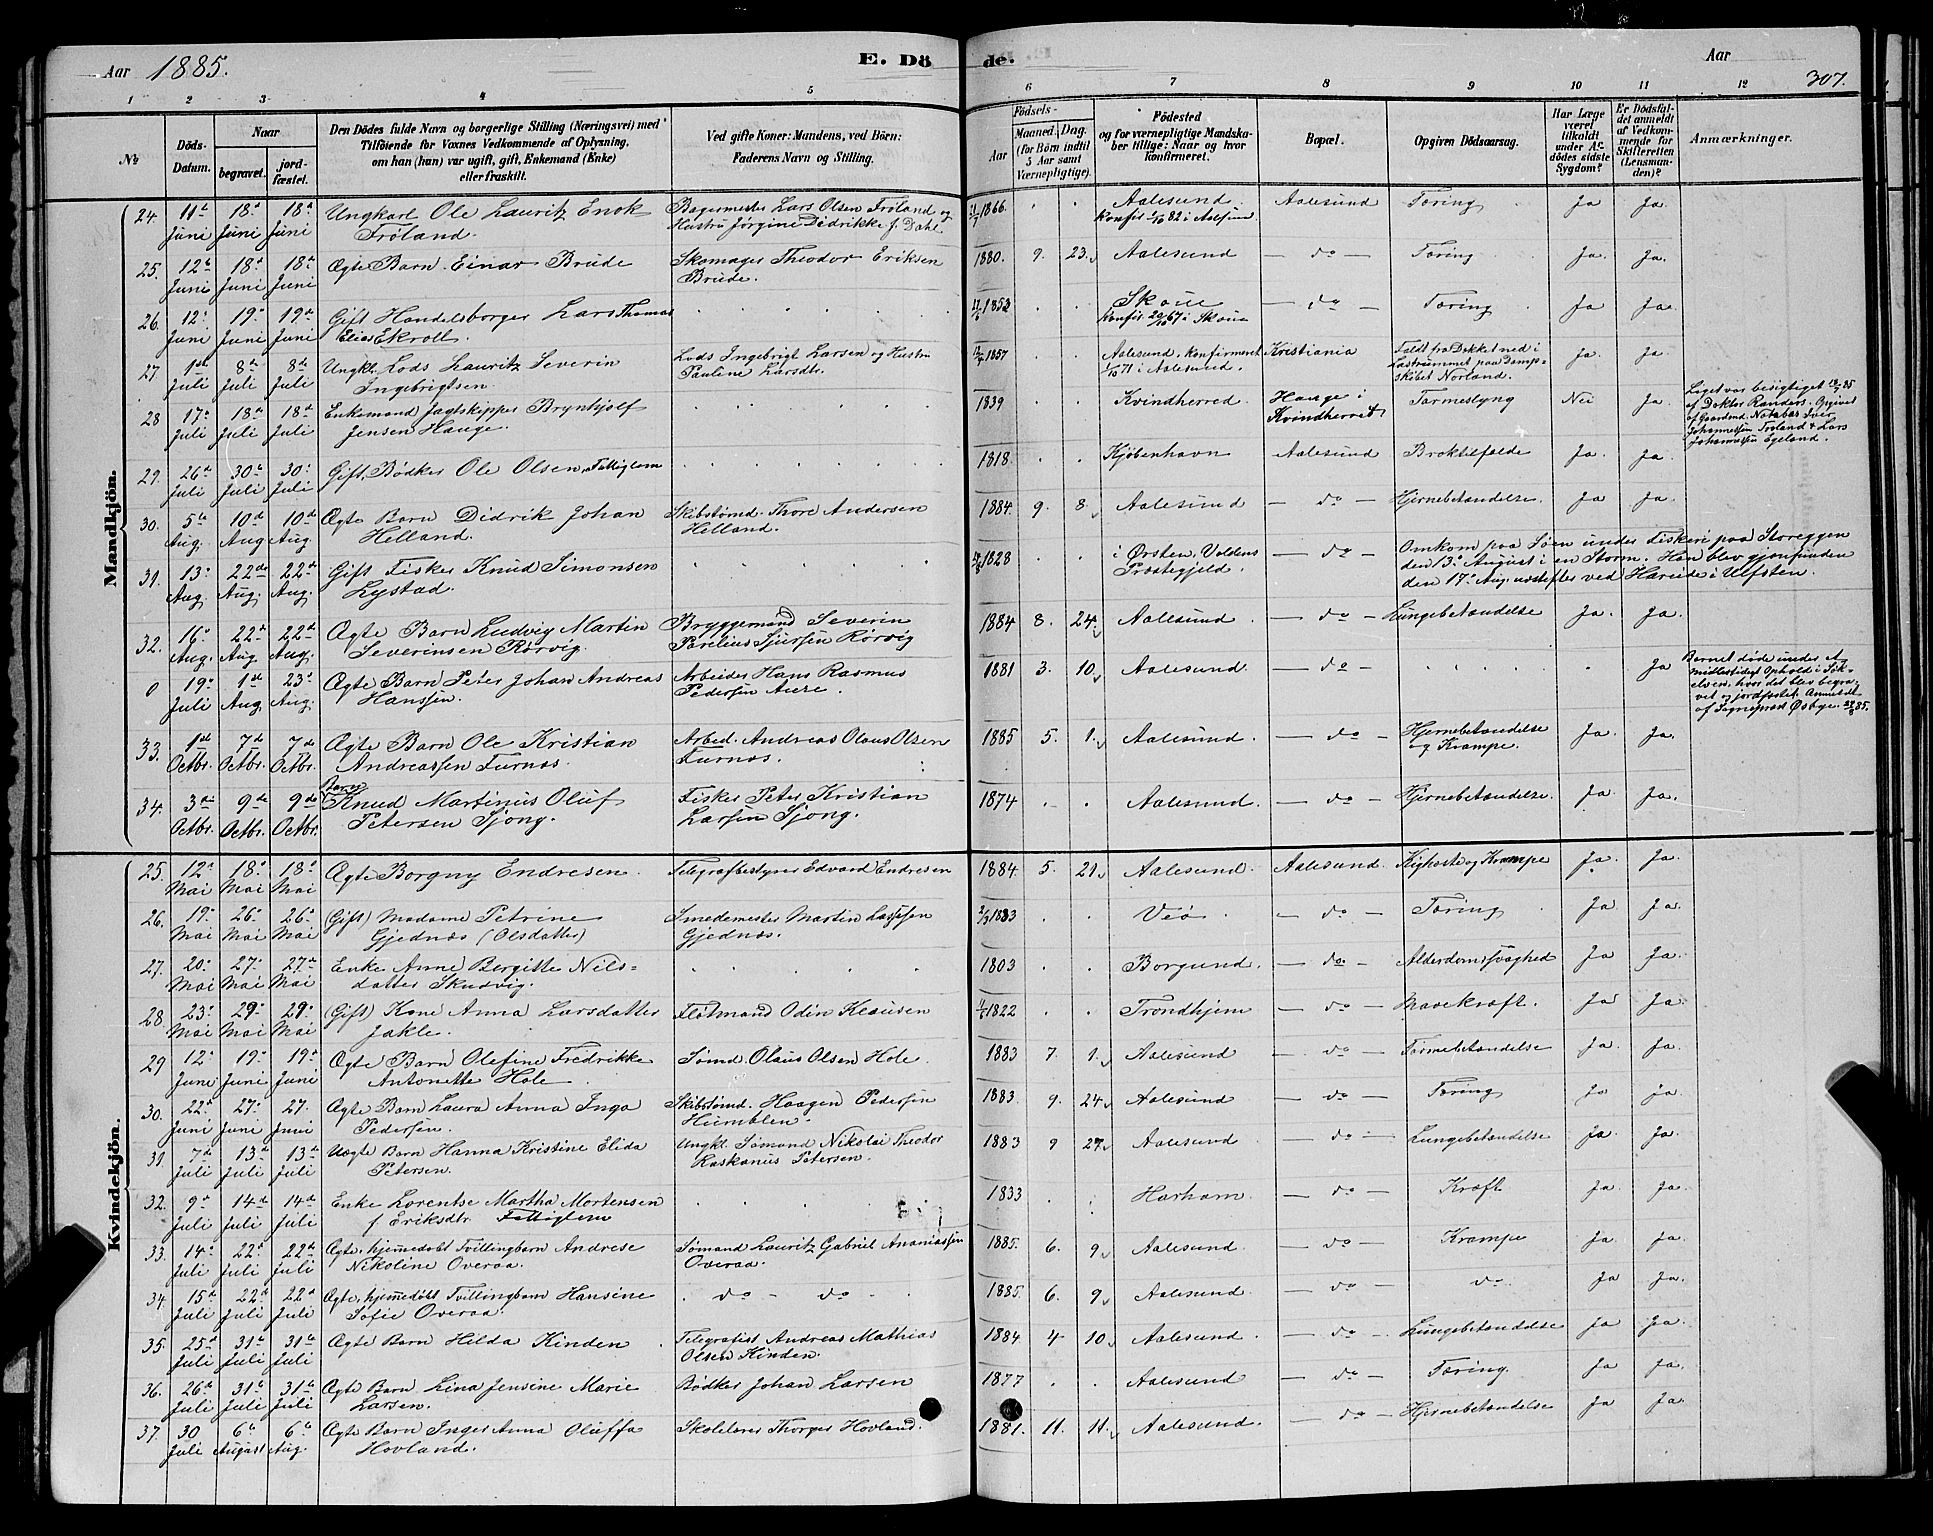 Aar 1885.
E. Dö de.
Aar
307.
1 2 3 4 5 6 7 8 9 10 11 12
No
Döds-Datum.
Naar
begravet.
jord-fæstet.
Den Dödes fulde Navn og borgerlige Stilling (Næringsvei) med
Tilföiende for Voxnes Vedkommende af Oplysning,
om han (hun) var ugift, gift, Enkemand (Enke)
eller fraskilt.
Ved gifte Koner: Mandens, ved Börn:
Faderens Navn og Stilling.
Födsels-
Aar
Maaned. Dag.
(for Börn indtil
5 Aar samt
Værnepligtige).
Födested
og for værnepligtige Mandska-
ber tillige: Naar og hvor
konfirmeret.
Bopæl.
Opgiven Dödsaarsag.
Har Læge
været
tilkaldt
under Ac.
dödes sidste
Sygdom?
Er Dödsfal-
det anmeldt
af Vedkom-
mende for
Skifteretten
(Lensman-
den)?
Anmærkninger.
Mandkjön.
24. 11te Juni 18de Juni 18de Juni Ungkarl Ole Lauritz Enok Frøland. Bagermester Lars Olsen Frøland og Hustru Jørgine Didrikke f. Dahl. 1866. Aalesund konfir. 1/10 82 i Aalesund. Aalesund Tæring Ja Ja
25. 12te Juni 18de Juni 18de Juni Ægte Barn Einar Brude Skomager Theodor Eriksen Brude. 1880. 9. 23. Aalesund — do — Tæring Ja. Ja.
26. 12te Juni 19de Juni 19de Juni Gift Handelsborger Lars Thomas Elias Ekroll 1853 Skoue konfir. 29/10 67 i Skoue — do — Tæring Ja Ja.
27. 1ste Juli 8de Juli 8de Juli Ungkl. Lods Lauritz Severin Ingebrigtsen. Lods Ingebrigt Larsen og Hustru Pauline Larsdtr. 1857 Aalesund, konfirmeret 1/10 71 i Aalesund. Kristiania Faldt fra Dækket ned i Lastrummet paa Damp-skibet Norland. Ja. Ja.
28 17de Juli 18de Juli 18de Juli Enkemand Jagtskipper Brynhjolf Jensen Hauge. 1839 Kvindherred. Hauge i Kvindherret Tarmeslyng Nei Ja. Liget var besigtiget 18/7 85 af Doktor Randers. Opgivet af Gaardmd. Iver Johannessen Frøland & Lars Johannessen Egeland.
29. 26de Juli 30te Juli 30te Juli Gift, Bødker Ole Olsen, Fattiglem 1818. Kjøbenhavn Aalesund Broktilfælde Ja. Ja.
30. 5te Aug. 10de Aug 10de Aug. Ægte Barn Didrik Johan Helland. Skibstømd. Thore Andersen Helland. 1884. 9. 8. Aalesund — do — Hjernebetændelse. Ja Ja.
31. 13de Aug. 22de Aug. 22de Aug. Gift Fisker Knud Simonsen Lystad. 1828 i Ørsten, Voldens Præstegjeld. — do — Omkom paa Søen under Fiskeri paa Storeggen den 13de August i en Storm. Han blev gjenfunden den 17de Aug. næstefter ved Hareide i Ulfsten.
32. 16de Aug. 22de Aug 22de Aug. Ægte Barn Ludvig Martin Severinsen Rørvig. Bryggermand Severin Parelius Sjursen Rørvig 1884 8. 24. Aalesund — do — Lungebetændelse Ja. Ja.
0 19de Juli 1ste Aug. 23de Aug. Ægte Barn Peter Johan Andreas Hanssen. Arbeider Hans Rasmus Pedersen Aure. 1881 3. 10. Aalesund. — do — Ja Barnet døde under et midlertidigt Ophold i Søkelven, hvor det blev begravet og jordfæstet. Anmeldt af Sogneprest Østbye. 85.
33. 1ste Octbr. 7de Octbr. 7de Octbr. Ægte Barn Ole Kristian Andreassen Furnæs. Arbed. Andreas Olaus Olsen Furnæs. 1885 5. 1. Aalesund. — do — Hjernebetændelse og Krampe. Ja. Ja.
34. 3die Octbr. 9de Octbr. 9de Octbr. Barn Knud Martinus Oluf Petersen Sjong. Fisker Peter Kristian Larsen Sjong. 1874 Aalesund. — do — Hjernebetændelse. Ja. Ja.
Kvindekjön.
25. 12te Mai 18de Mai 18de Mai Ægte Borgny Endresen. Telegrafbestyrer Edvard Endresen 1884. 5. 21. Aalesund. Aalesund. Kighoste og Krampe Ja. Ja.
26. 19de Mai 26de Mai 26de Mai (Gift) Madame Petrine Gjednæs (Olsdatter) Smedemester Martin Larssen Gjednæs. 1833 Veø. — do — Tæring Ja Ja.
27. 20de Mai 27de Mai 27de Mai Enke Anne Bergitte Nils-datter Skudvig. 1803 Borgund. — do — Alderdomssvaghed Ja Ja.
28. 23de Mai 29de Mai 29de Mai (Gift) Kone Anna Larsdatter Jakle. Fløtmand Odin Klausen 1822 Trondhjem — do — Mavekræft. Ja Ja.
29 12te Juni 19de Juni 19de Juni Ægte Barn Olefine Fredrikke Antonette Hole Sømd. Olaus Olsen Hole. 1883 7. 1. Aalesund — do — Tarmebetændelse Ja. Ja.
30. 22de Juni 27de Juni 27. Juni Ægte Barn Laura Anna Inga Pedersen. Skibstømd. Haagen Pedersen Humblen. 1883. 9. 24. Aalesund — do — Tæring Ja Ja.
31. 7de Juli 13de Juli 13de Juli Uægte Barn Hanna Kristine Elida Petersen. Ungkl. Sømand Nikolai Theodor Kaskanus Petersen. 1883 9 27. Aalesund — do — Lungebetændelse Ja. Ja.
32. 9de Juli 14de Juli 14de Juli Enke Lorentse Martha Mortensen f. Eriksdtr. Fattiglem 1833 Harham. — do — Kræft Ja. Ja.
33. 14de Juli 22de Juli 22de Juli Ægte, hjemmedøbt Tvillingbarn Andrese Nikoline Overaa. Sømand Lauritz Gabriel Ananiassen Overaa. 1885. 6. 9. Aalesund. — do — Krampe Ja. Ja.
34. 15de Juli 22de Juli 22de Juli Ægte, hjemmedøbt Tvillingbarn Hansine Sofie Overaa. do — do 1885. 6. 9. Aalesund — do — do. Ja Ja.
35. 25de Juli 31te Juli 31te Juli Ægte Barn Hilda Kinden Telegrafist Andreas Mathias Olsen Kinden. 1884 4 10. Aalesund — do — Lungebetændelse Ja Ja.
36. 26de Juli 31te Juli 31te Juli Ægte Barn Lina Jensine Marie Larsen. Bødker Johan Larsen 1877 Aalesund — do — Tæring. Ja Ja.
37. 30 Juli 6te August 6te Aug. Ægte Barn Inger Anna Oluffa Hovland. Skolelærer Thorger Hovland. 1881. 11. 11. Aalesund. — do — Hjernebetændelse Ja Ja.